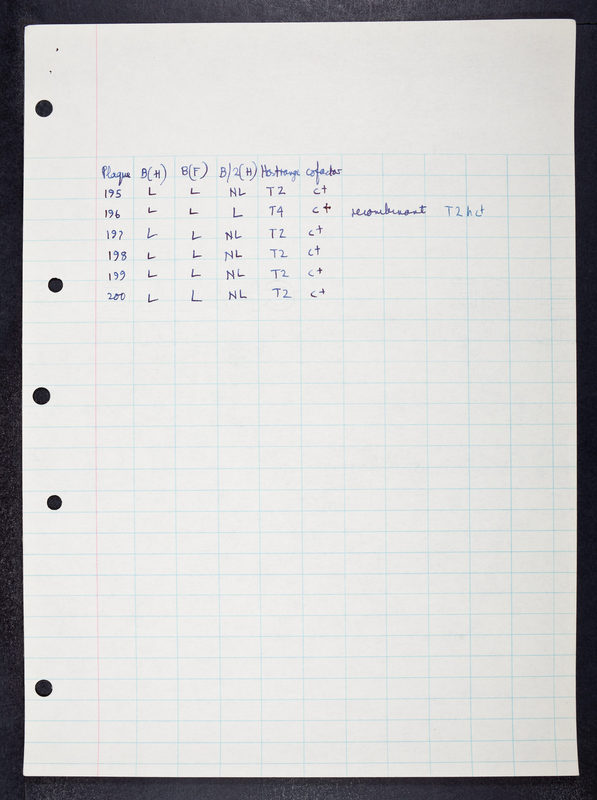 Plaque B(H) B(F) B/2(H) Hostrange cofactor
195 L L NL T2 c+
196 L L L T4 c+ recombinant T2hc+
197 L L NL T2 c+
198 L L NL T2 c+
199 L L NL T2 c+
200 L L NL T2 c+